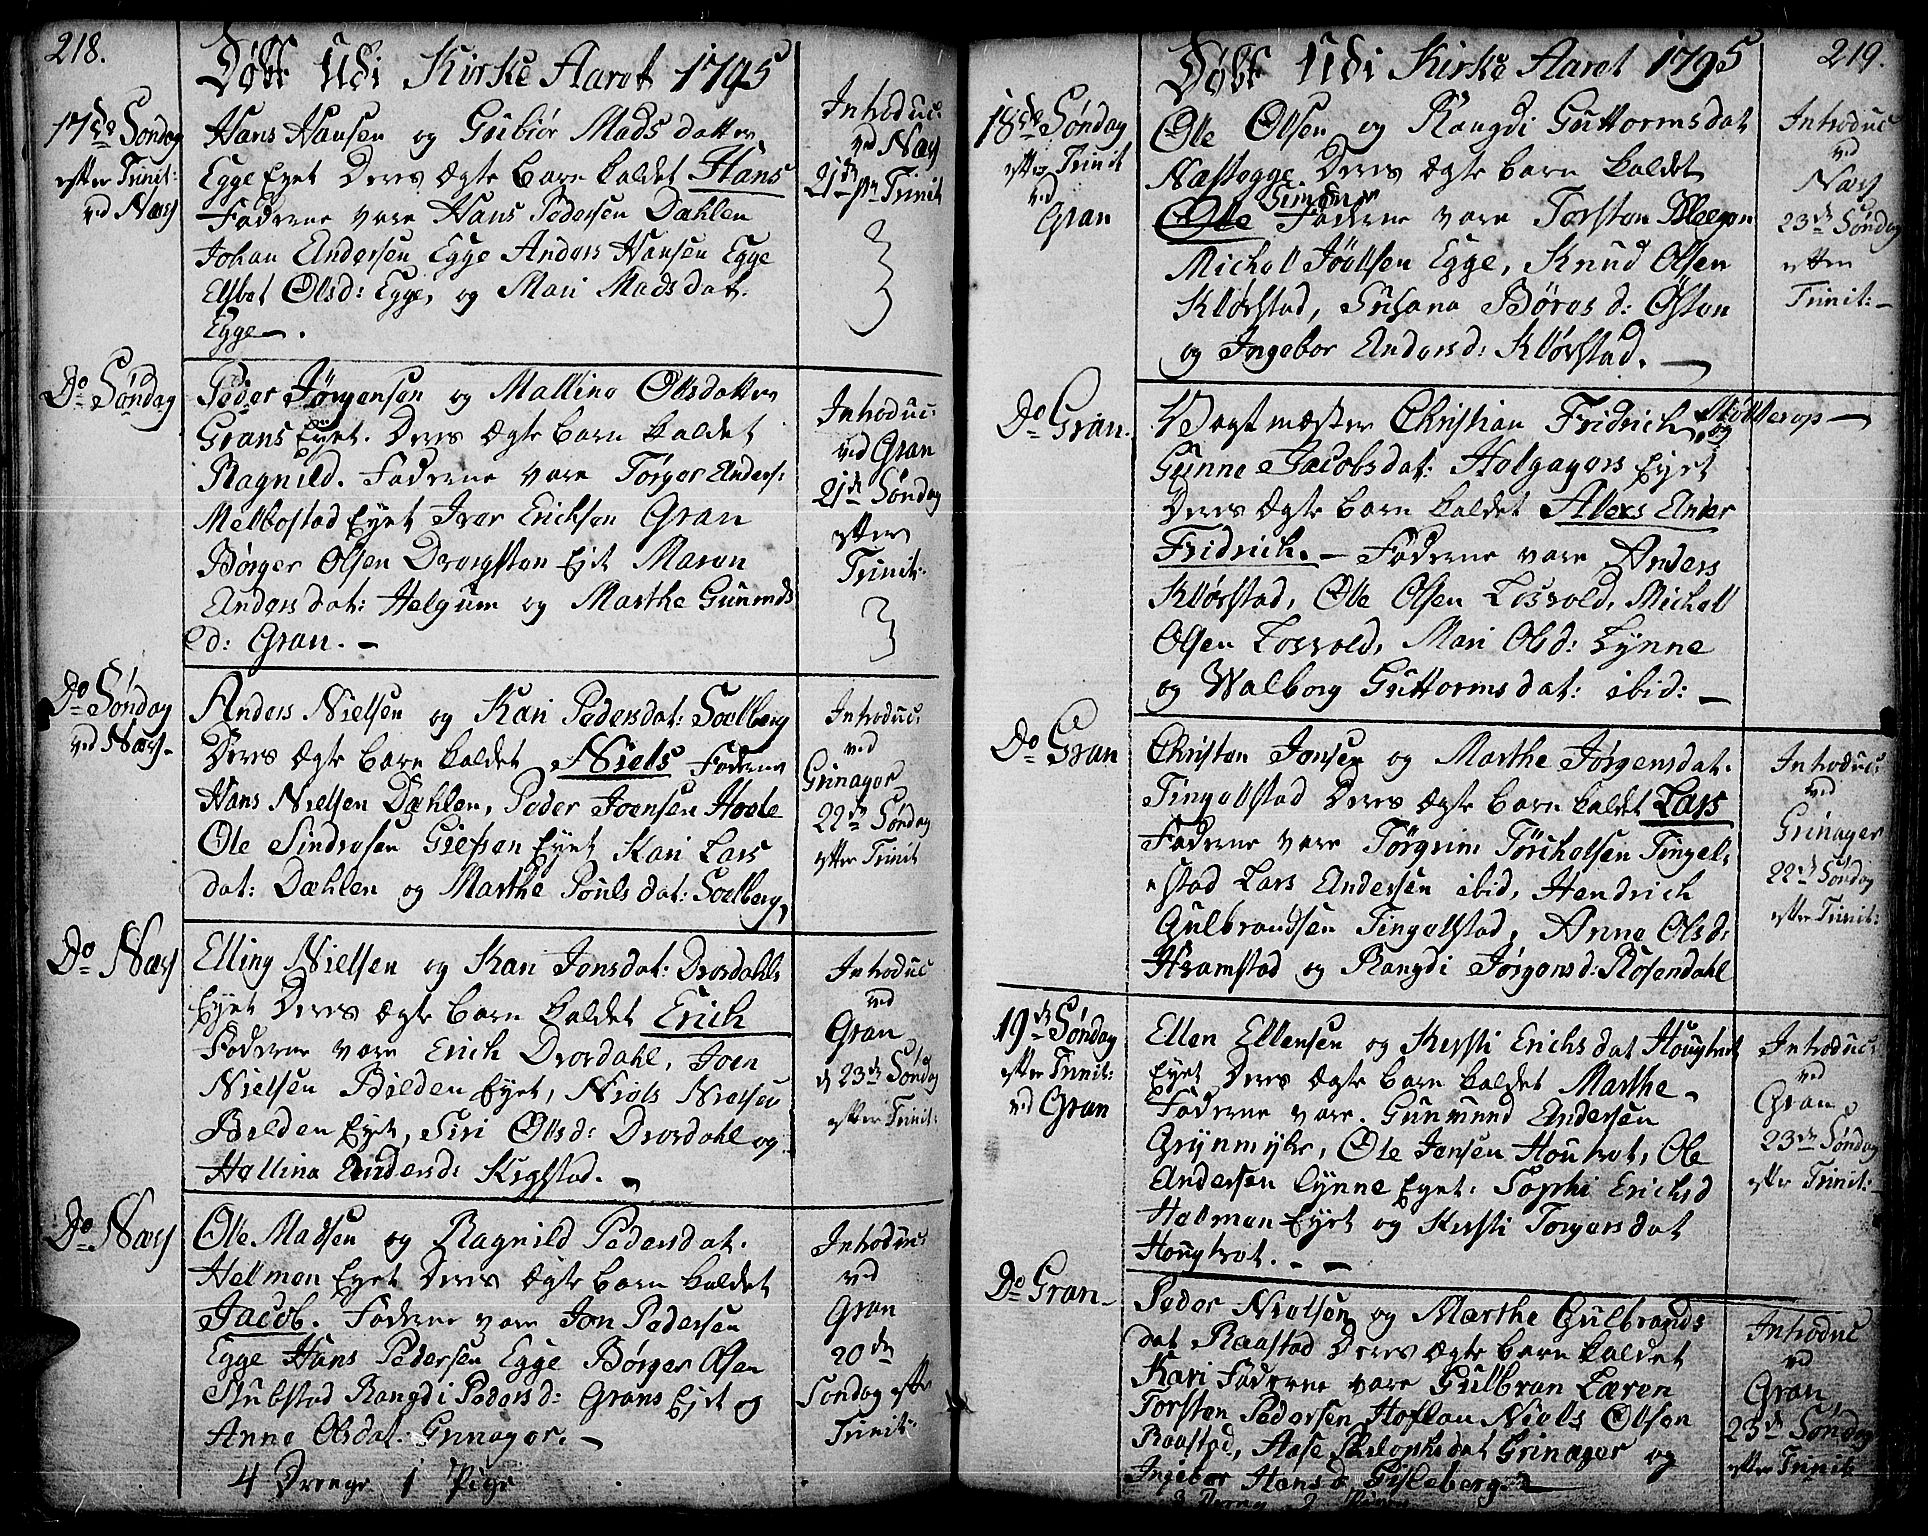 218.
Døbt Udi Kirke Aaret 1795
17de Søndag
efter Trinit:
ved Næss
Hans Hansen og Gubiør Mads datter
Egge Eyet Deres Ægte barn kaldet Hans
Faderne vare Hans Pedersen Dæhlen
Johan Andersen Egge Anders Hansen Egge
Elsbet Olsd: Egge, og Mari Madsdat.
Egge.
Introduc:
ved Næss
21de p: Trinit
Do Søndag
Peder Jørgensen og Mallina Olsdatter
Grans Eyet. Deres Ægte barn kaldet
Ragnild. Faderne vare Torger Anders:
Melbostad Eyet Iver Ericksen Gran
Børger Olsen Eyet Maren
Andersdat: Helgum og Marthe Gunmds
d: Gran.
Introduc:
ved Gran
21de Søndag
efter
Trinit:
Do Søndag
ved Næss
Anders Nielsen og Kari Pedersdat: Soelberg
Deres Ægte barn kaldet Niels Faderne
Hans Nielsen Dæhlen, Peder Joensen Hoele
Ole Sindresen Eyet Kari Lars
dat: Dæhlen og Marthe Poulsdat: Soelberg,
Introduc:
ved
Grinager
22de Søndag
efter Trinit
Do Næss
Elling Nielsen og Kari Jonsdat: Drordahls
Eyet Deres Ægte barn kaldet Erich
Faderne vare Erich Drordahl, Joen
Nielsen Bilden Eyet, Niels Nielsen
Bilden Eyet, Siri Olsd: Drordahl og
Hellina Andersd:
Introduc
ved
Gran
d 23de Søndag
efter Trinit:
Do Næss
Ole Madsen og Ragnild Pedersdat.
Helmen Eyet Deres Ægte barn kaldet
Jacob. Faderne vare Jon Pedersen
Egge Hans Pedersen Egge Børger Olsen
Stubstad Rangdi Pedersd: Grans Eyet og
Anne Olsdat: Grinager.
Introduc:
ved
Gran
20de
Søndag efter
Trinit:
4 Drenge 1 Pige
219.
Døbt Udi Kirke Aaret 1795
18de Søndag
efter Trinit
ved
Gran
Ole Olsen og Rangdi Guttormsdat
Deres Ægte barn kaldet
Simen
Ole Faderne vare Torsten
Michell Joelsen Egge, Knud Olsen
Kløvstad, Susana Børesd: Østen
og Ingebor Andersd: Kløvstad.
Introduc
ved
Næss
23de Søndag
efter
Trinit:
Do Gran.
Vagtmæster Christian Fridrich og
Gunne Jacobsdat: Helgagers Eyet
Deres Ægte barn kaldet Alexs Ander
Fridrich. Faderne vare Anders
Kløvstad, Ole Olsen Losvold, Michell
Olsen Losvold, Mari Olsd: Lynne
og Walborg Guttormsdat: ibid:
Do Gran
Christen Jonsen og Marthe Jørgensdat.
Tingelstad Deres Ægte barn kaldet Lars
Faderne vare Torgrim Torchelsen Tingel-
stad Lars Andersen ibid, Hendrich
Gulbrandsen Tingelstad, Anne Olsd:
Framstad og Rangdi Jørgensd: Rosendahl
Introduc:
ved
Grinager
22de Søndag
efter Trinit:
19de Søndag
efter Trinit:
ved Gran
Ellen Ellensen og Kersti Erichsdat Hougtvet
Eyet Deres Ægte barn kaldet Marthe
Faderne vare. Gunmund Andersen
Grynmyhr, Ole Jensen Hougtvet, Ole
Andersen Lynne Eyet. Sophi Erichsd
Helmen Eyet og Kersti Torgersdat
Hougtvet.
Introduc:
ved
Gran
23de Søndag
efter Trinit:
Do Gran
Peder Nielsen og Marthe Gulbrands
dat Raastad Deres Ægte barn kaldet
Kari Faderne vare Gulbran Læren
Torsten Pedersen Niels Olsen
Raastad, Aase Grinager og
Ingebor Hansd Gisleberg.
Introduc
ved
Gran
23de Søndag
efter Trinit